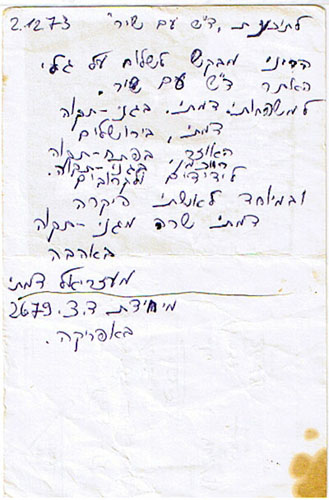 2.12.73
לתוכנית "ד"ש עם שיר"
הריני מבקש לשלוח על גלי
האתר ד"ש עם שיר.
למשפחותי: דמתי בגני-תקוה
דמתי, בירושלים
בפתח-תקוה
בגני-תקוה.
לידידים ולקרובים
ובמיוחד לאשתי היקרה
דמתי שרה מגני-תקוה
באהבה
מעזריאל דמתי
מיחידת ד.צ. 2679
באפריקה.